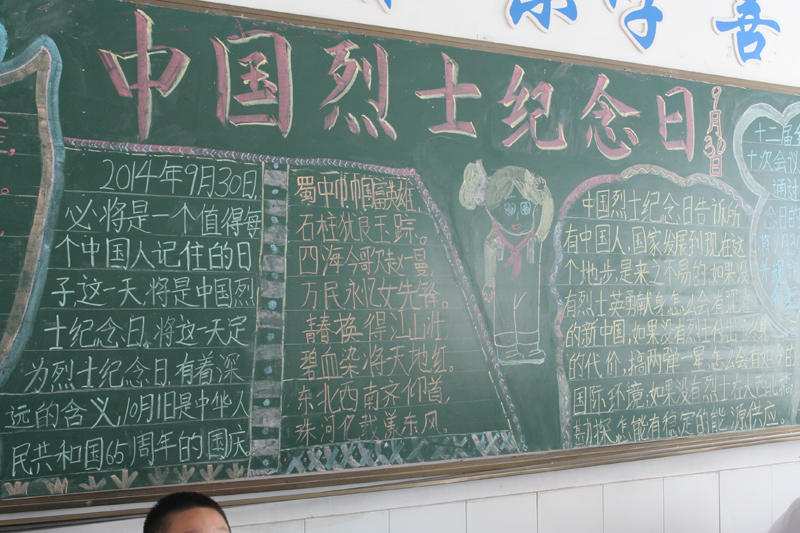 中国烈士纪念日
9月30日
2014年9月30日
必将是一个值得每
个中国人记住的日
子这一天,将是中国烈
士纪念日。将这一天定
为烈士纪念日,有着深
远的含义,10月1日是中华人
民共和国65周年的国庆
蜀中巾帼富英雄
石柱犹良玉踪。
四海今歌赵一曼
万民永忆女先锋。
青春换得江山壮
碧血染将天地红。
东北西南齐仰首,
珠河亿载荡东风。
中国烈士纪念日告诉所
有中国人,国家发展到现在这
个地步,是来之不易的,如果没
有烈士英勇献身,怎么会有
的新中国,如果没有烈士付出
的代价,搞两弹一星,怎么会有
国际环境,如果没有烈士在大
勘探,怎能有稳定的能源供应。
十二届全
十次会议
通过
念日